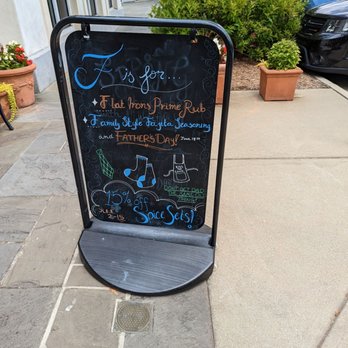 F is for...
Flat Irons Prime Rub
Family Style Fajita Seasoning
and FATHER'S DAY!
15% off
Spice Sets!